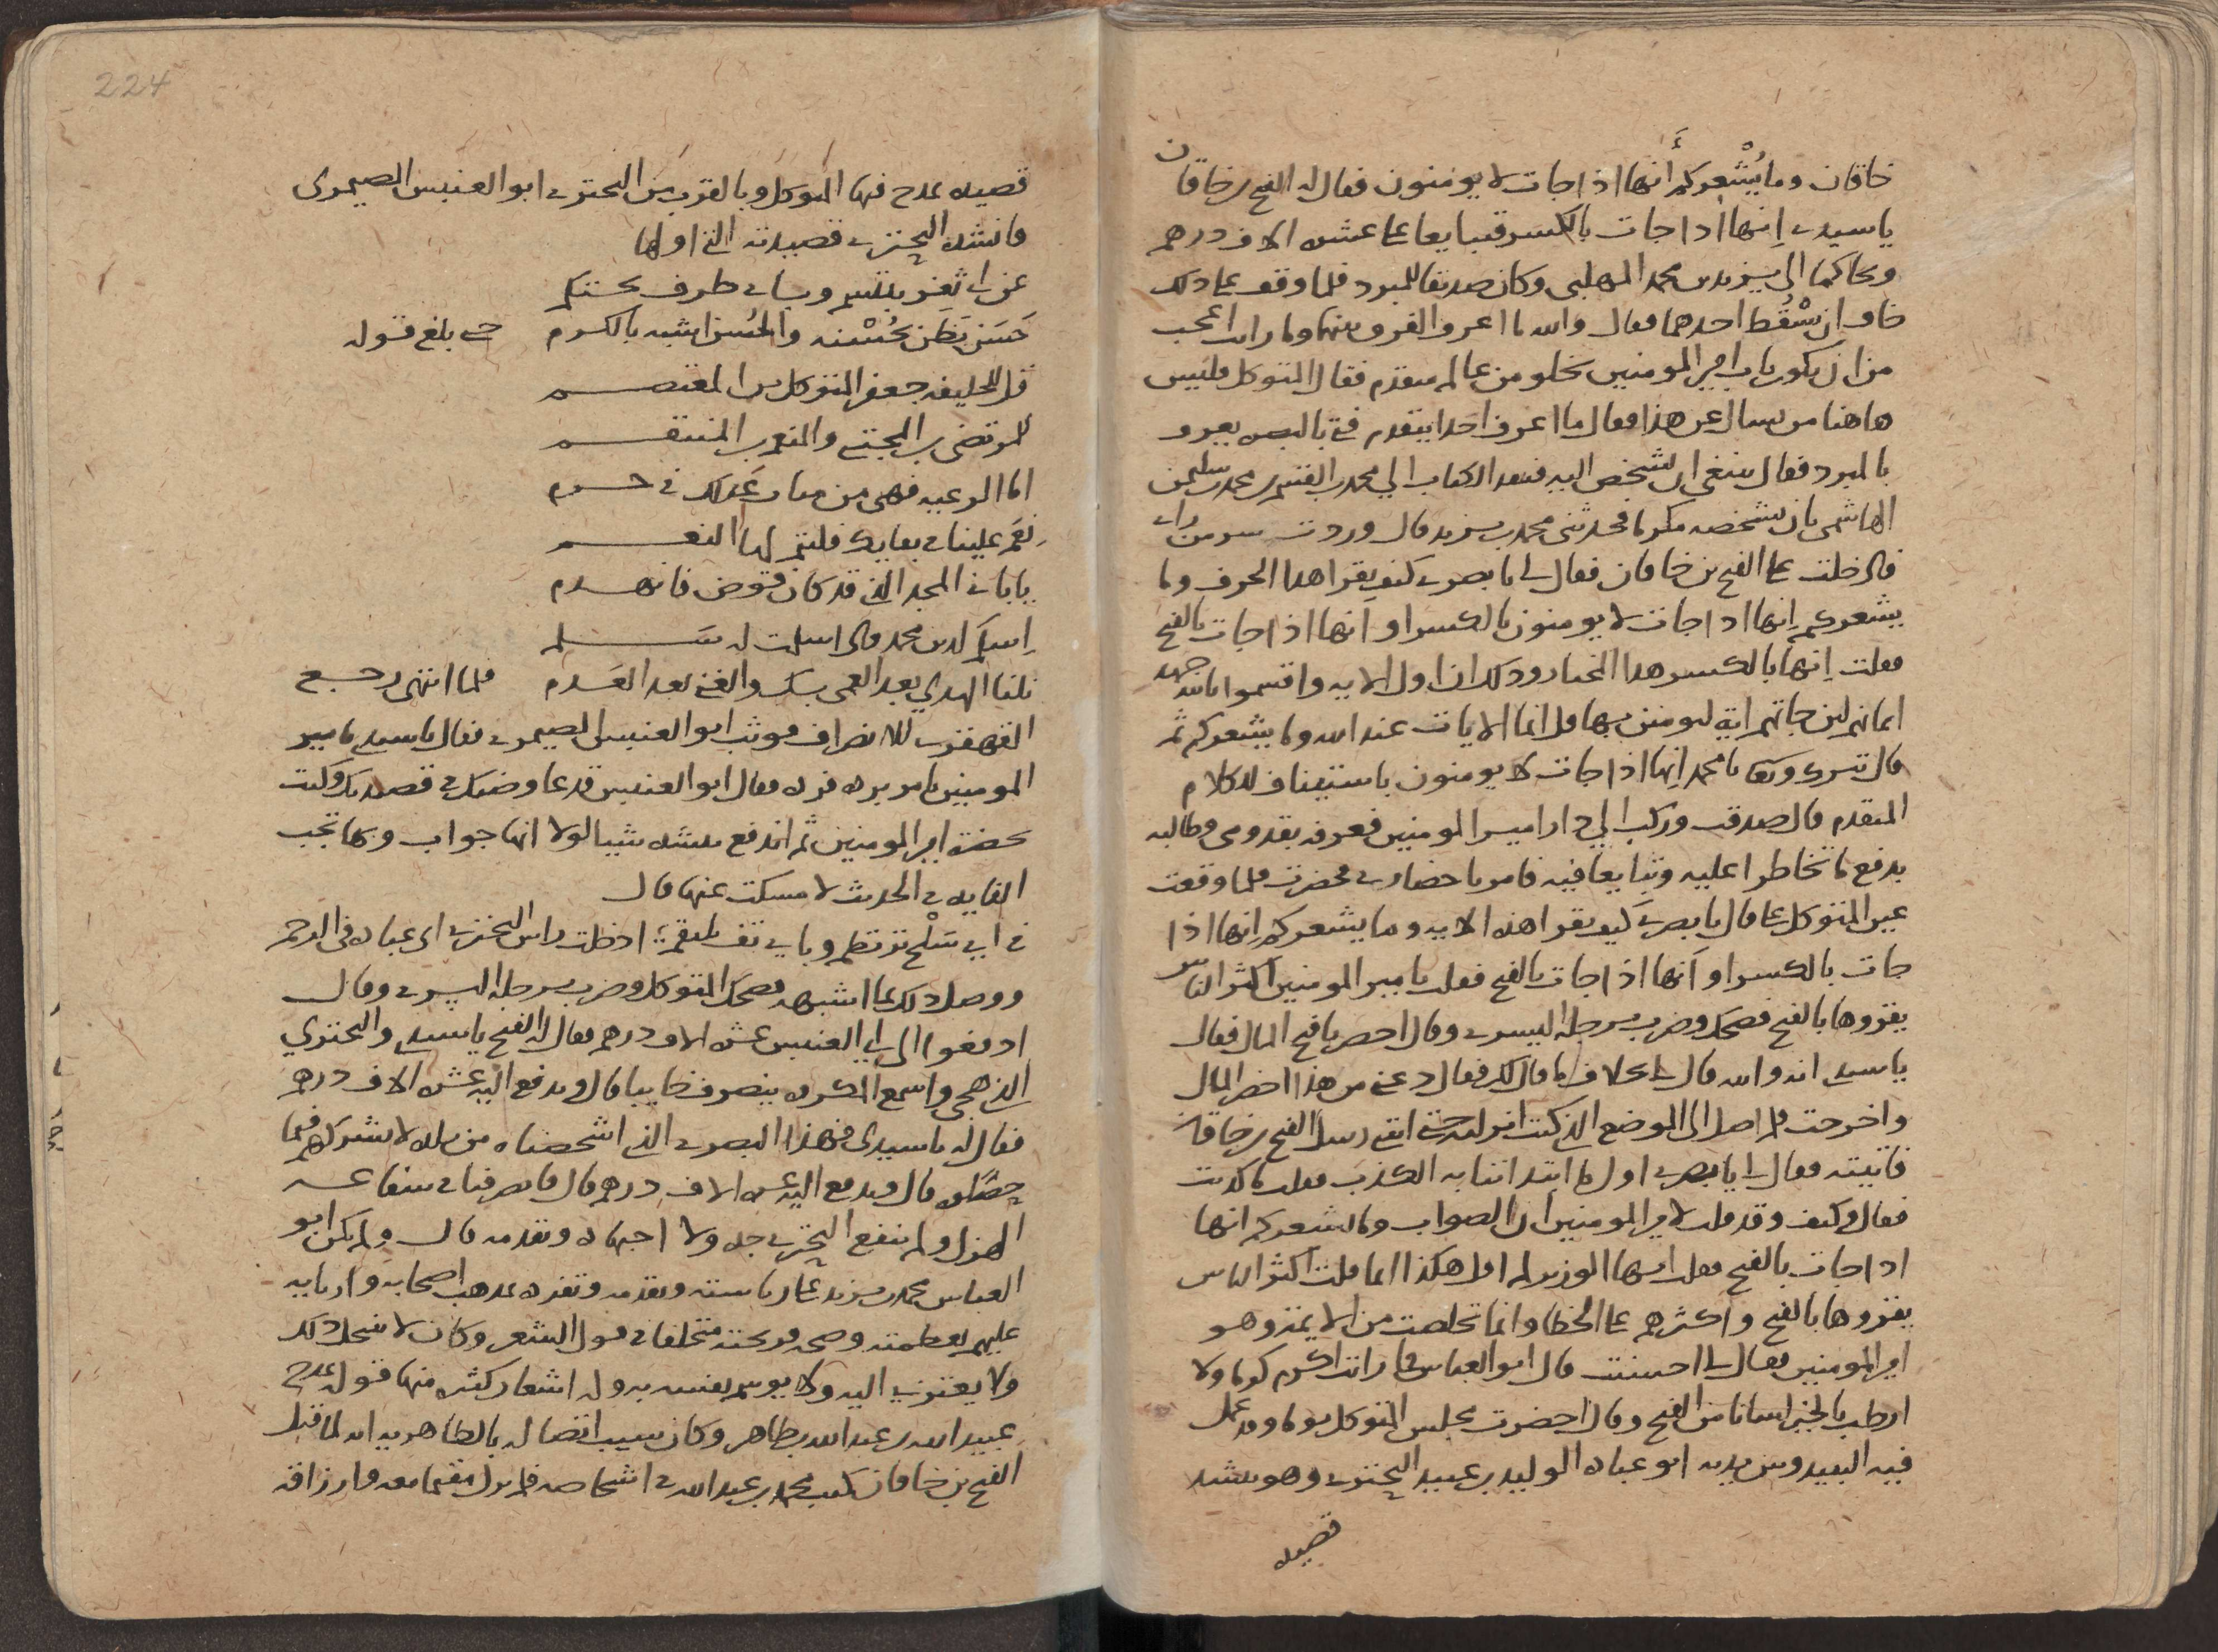 خاقان وما يُشْعركم أَنها اذا جات لا يومنون فقال له الفتح بن خاقان
يا سيدي اِنها اذا جات بالكسر فتبايعا على عشرة الاف درهم
وتحاكما الى يزيد بن محمد المهلبي وكان صديقا للمبرد فلما وقف على ذلك
خاف ان سْقُط احدهما فقال والله ما اعرف الفرق بينهما وما رايت اعجب
من ان يكون باب امير المومنين يخلو من عالم متقدم فقال المتوكل فليس
هاهنا من يسال عن هذا فقال ما اعرف احدا يتقدم فتى بالبصرة يعرف
بالمبرد فقال ينبغي ان يشخص اليه فنفد الكتاب الي محمد بن القسم بن محمد بن سليمن
الهاشمي بان يشخصه مكرما فحدثني محمد بن يزيد قال وردت سر من راى
فادخلت على الفتح بن خاقان فقال لي يا بصري كيف يقرا هذا الحرف وما
يشعركم اِنها اذا جات لا يومنون بالكسر او انها اذا جات بالفتح
فقلت اِنها بالكسر هذا المختار وذلك ان اول الاية واقسموا بالله جهد
ايمانهم لين جاتهم اية ليومنن بها قل انما الايات عند الله وما يشعركم ثم
قال تبرك وتعا يا محمد اِنها اذا جات لا يومنون باستيناف للكلام
المتقدم قال صدقت وركب الي دار امير المومنين فعرفه بقدومي وطالبه
بدفع ما تخاطرا عليه وتبايعا فيه فامر باحضاري فحضرت فلما وقعت
عين المتوكل على قال يا بصري كيف تقرا هذه الاية وما يشعركم اِنها اذا
جات بالكسر او اَنها اذا جات بالفتح فقلت يامير المومنين اكثر الناس
يقروها بالفتح فضحك وضرب برجله اليسرى وقال احضر يا فتح المال فقال
يا سيدي انه والله قال لي بخلاف ما قال لك فقال دعني من هذا احضر المال
واخرجت فلم اصل الى الموضع الذي كنت انزلته حتى اتتني رسل الفتح بن خاقان
فاتيته فقال لي يا بصري اول ما ابتداتنا به الكذب فقلت ما كذبت
فقال وكيف وقد قلت لامير المومنين ان الصواب وما يشعركم انها
اذا جات بالفتح فقلت ايها الوزير لم اقل هكذا انما قلت اكثر الناس
يقروها بالفتح واكثرهم على الخطا وانما تخلصت من اللايمة وهو
امير المومنين فقال لي احسنت قال ابو العباس فما رايت اكرم كرما ولا
ارطب بالخير لسانا من الفتح وقال حضرت مجلس المتوكل يوما وقد عمل
فيه النبيذ وبين يديه ابو عباده الوليد بن عبيد البحتري وهو ينشد
قصيده
224
قصيده يمدح فيها المتوكل وبالقرب من البحتري ابو العنبس الصيمري
فانشده البحتري قصيدته التي اولها
عن اي ثغر تبتسم وباي طرف تحتكم
حَسَن يَظَن بحُسْنه والحُسن اشبه بالكرم حتى بلغ قوله
قل للخليفه جعفر المتوكل بن المعتصم
المرتضى بن المجتبى والمنعم بن المنتقم
اما الرعيه فهي من امنات عَدلك في حرم
نِعَم علينا في بقايك فلتتم لها النعم
يا باني المجد الذي قد كان قوض فانهدم
اِسلَم لدين محمد فاذا سلمت له سَلم
نلنا الهدي بعد العمى بك والغنى بعد العَدم فلما انتهى رجع
القهقري للانصراف فوثب ابو العنبس الصيمري فقال يا سيدي يا امير
المومنين تامر برده فرده فقال ابو العنبس قد عارضتك في قصيدتك وكنت
بحضرة امير المومنين ثم اندفع ينشد شيا لولا انها جواب وبها تجب
الفايده في الحديث لامسكت عنها قال
في اي سَلْح ترتطم وباي كف تلتقم؛ ادخلت راس البحتري ابي عباده في الرحم
ووصل ذلك بما اشبهه فضحك المتوكل وضرب برجله اليسرى وقال
ادفعوا الى ابي العنبس عشرة الاف درهم فقال له الفتح يا سيدي والبحتري
الذي هجي واسمع المكروه ينصرف خايبا قال ويدفع اليه عشرة الاف درهم
فقال له يا سيدي فهذا البصري الذي اشخصناه من بلده لا يشركهم فيما
حصلوه قال ويدفع اليه عشرة الاف درهم قال فانصرفنا في شفاعة
الهزل ولم ينفع البحتري جده ولا اجتهاده وتقدمه قال ولم يكن ابو
العباس محمد بن يزيد على رياسته وتقدمه وتفرده بمذهب اصحابه واربايه
عليهم بفطنته وصحة قريحته متخلفا في قول الشعر وكان لا ينتحل ذلك
ولا يعتزي اليه ولا يوسم نفسه به وله اشعار كثيره منها قوله يمدح
عبيد الله بن عبد الله بن طاهر وكان سبب اتصاله بالطاهريه انه لما قتل
الفتح بن خاقان كتب محمد بن عبد الله في اشخاصه فلم يزل مقيما معه وارزاقه